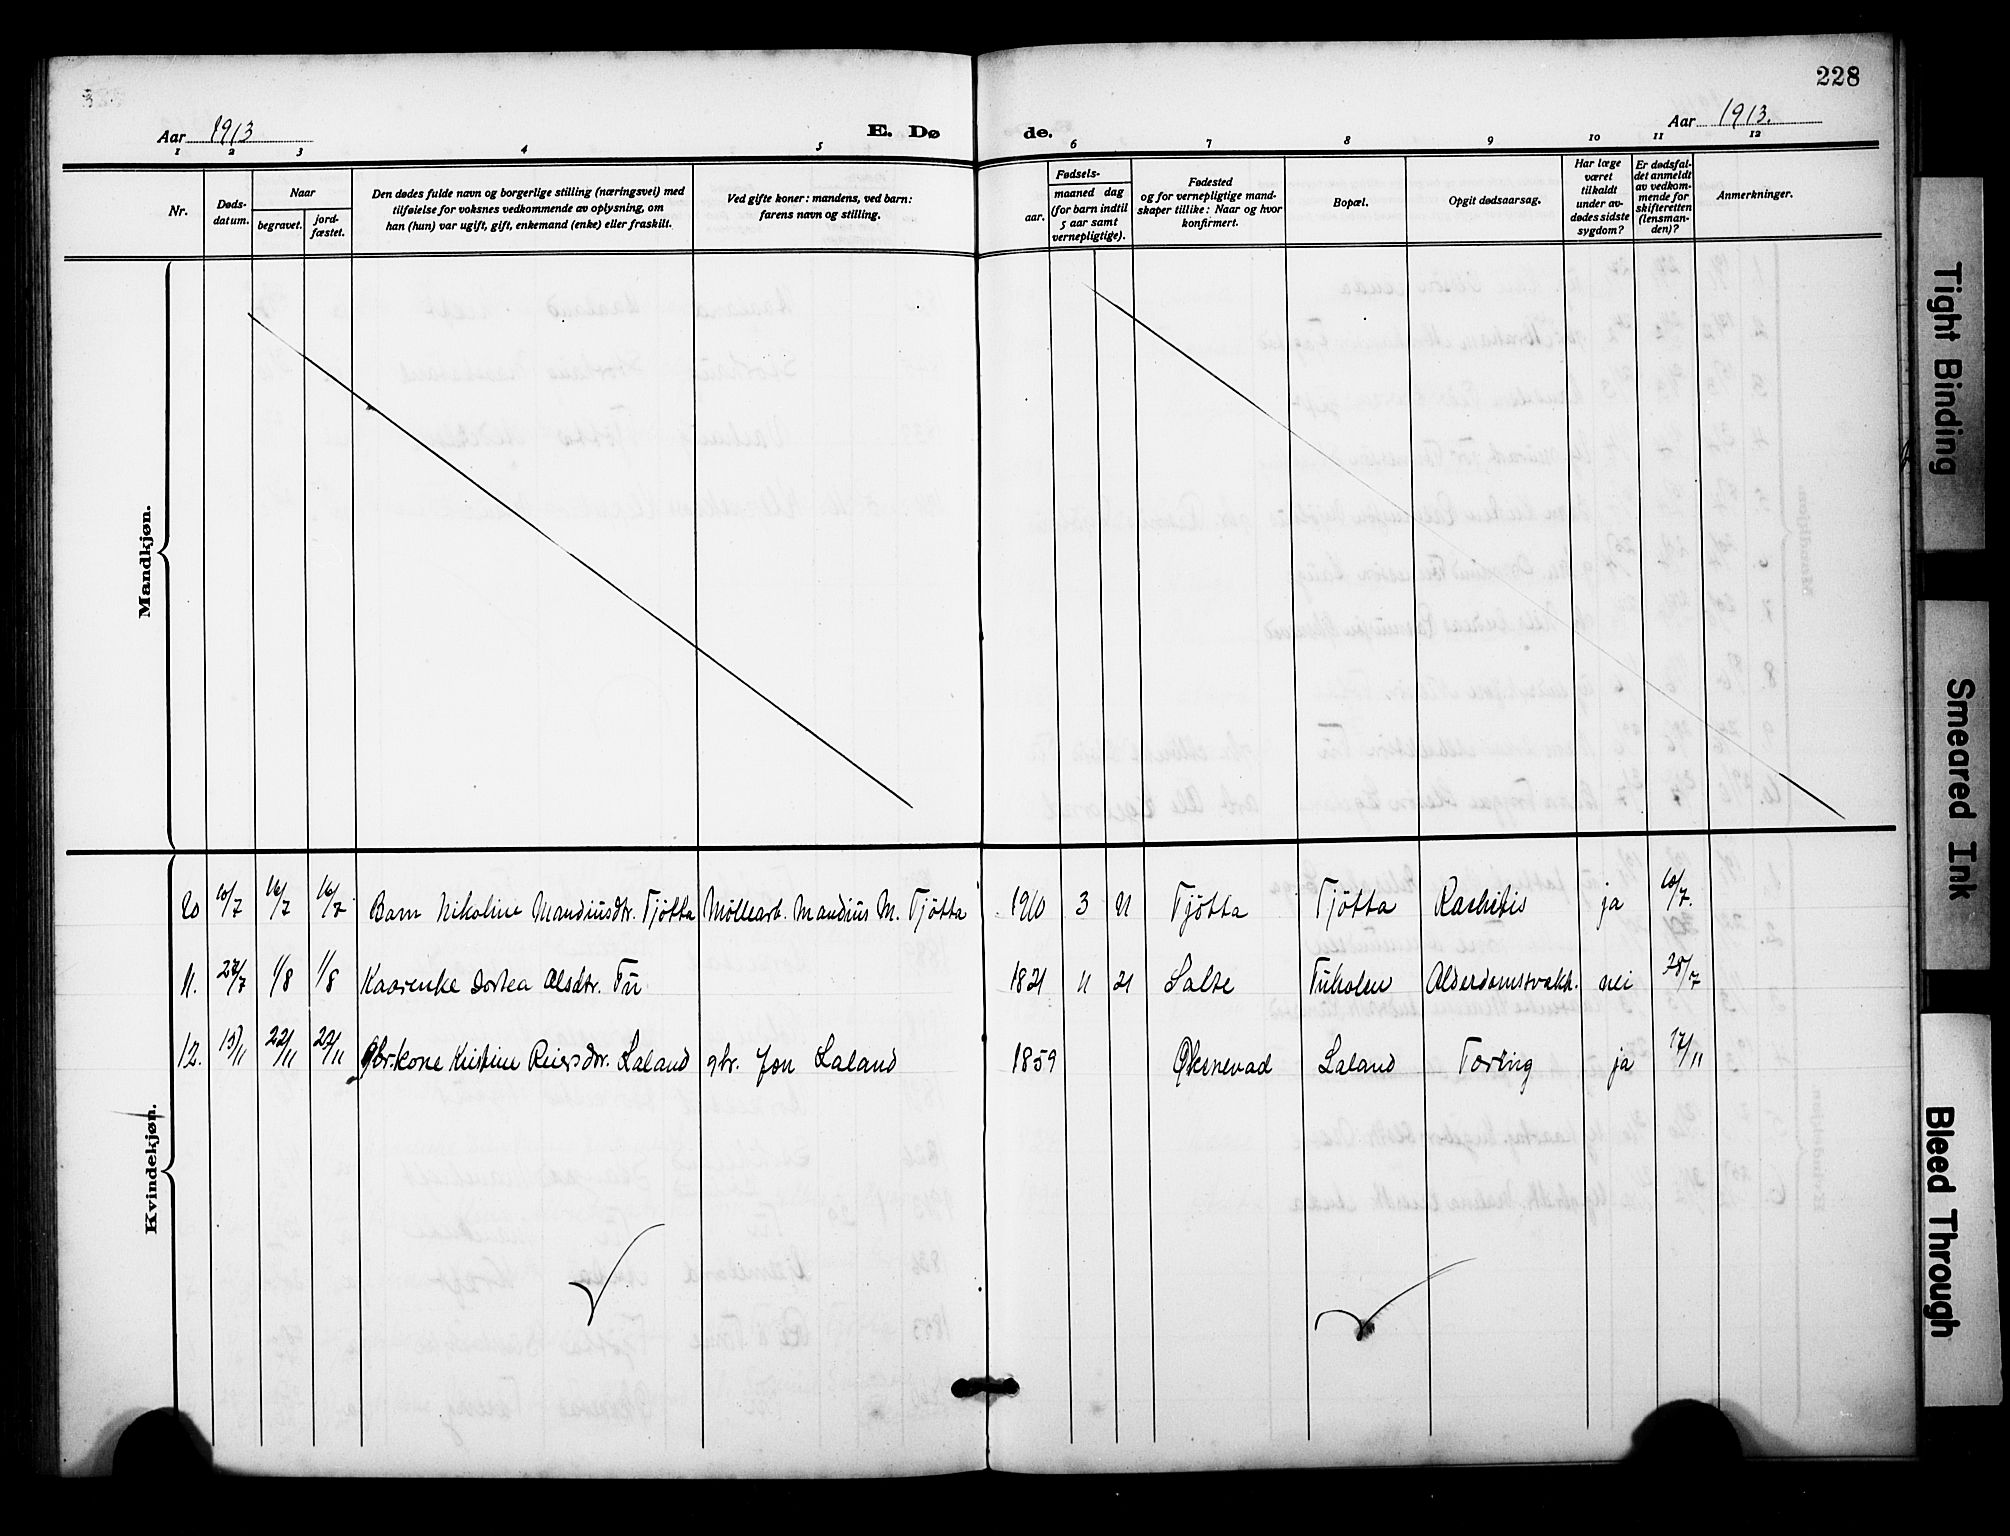 228
Aar 1913
E. Dø
de.
Aar 1913.
1 2 3 4 5 6 7 8 9 10 11 12
Nr.
Døds-
datum.
Naar
begravet.
jord-
fæstet.
Den dødes fulde navn og borgerlige stilling (næringsvei) med
tilføielse for voksnes vedkommende av oplysning, om
han (hun) var ugift, gift, enkemand (enke) eller fraskilt.
Ved gifte koner: mandens, ved barn:
farens navn og stilling.
Fødsels-
aar.
maaned dag
(for barn indtil
5 aar samt
vernepligtige).
Fødested
og for vernepligtige mand-
skaper tillike: Naar og hvor
konfirmert.
Bopæl.
Opgit dødsaarsag.
Har læge
været
tilkaldt
under av-
dødes sidste
sygdom?
Er dødsfal-
det anmeldt
av vedkom-
mende for
skifteretten
(lensman-
den)?
Anmerkninger.
Mandkjøn.
Kvindekjøn.
10 10/7 16/7 16/7 Barn Nikoline Mandiusdtr. Tjøtta Møllearb. Mandius M. Tjøtta 1910 3 11 Tjøtta Tjøtta Rachitis ja 10/7.
11. 27/7 1/8 1/8 Kaarenke Dortea Olsdtr. Tu 1821 11 21 Salte Tuholen Alderdomssvakh. nei 28/7
12. 15/11 22/11 22/11 Gbr.kone Kristine Reiersdtr. Laland gbr. Jon Laland 1859 Øksnevad Laland Tæring ja 17/11
Tight Binding
Smeared Ink
Bleed Through